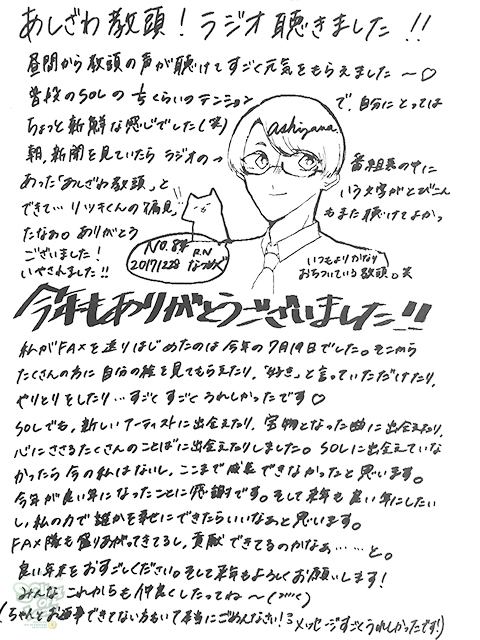 あしざわ教頭！ラジオ聴きました!!
昼間から教頭の声が聴けてすごく元気をもらえました〜♡
普段のSOLの ¾くらいのテンションで、自分にとっては
ちょっと新鮮な感じでした(笑)
朝、新聞を見ていたら ラジオの→
番組表の中に
あった「あしざわ教頭」と
いう文字がとびこん
できて… リツキくんの「偏見」
もまた聴けてよかっ
たなぁ。ありがとう
ございました！
いやされました!!
ashizawa.
No.84
R.N
20171228 なつめぐ
いつもよりかなり
おちついている教頭。笑
今年もありがとうございました!!
私がFAXを送りはじめたのは今年の7月19日でした。そこから
たくさんの方に自分の絵を見てもらえたり、「好き」と言っていただけたり、
やりとりをしたり…すごくすごくうれしかったです♡
SOLでも、新しいアーティストに出会えたり、宝物となった曲に出会えたり、
心にささるたくさんのことばに出会えたりしました。SOLに出会えていな
かったら今の私はないし、ここまで成長できなかったと思います。
今年が良い年になったことに感謝です。そして来年も良い年にしたい
し、私の力で誰かを幸せにできたらいいなぁと思います。
FAX隊も盛りあがってきてるし、貢献できてるのかなぁ……と。
良い年末をおすごしください。そして来年もよろしくお願いします！
みんなこれからも仲良くしたってね〜
(ちゃんとお返事できてない方もいて本当にごめんなさい！
メッセージすごくうれしかったです！)